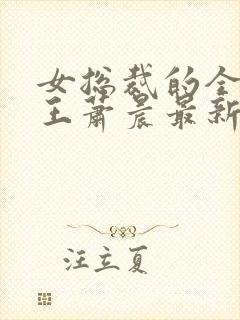 女总裁的全
王萧晨最新
汪立夏